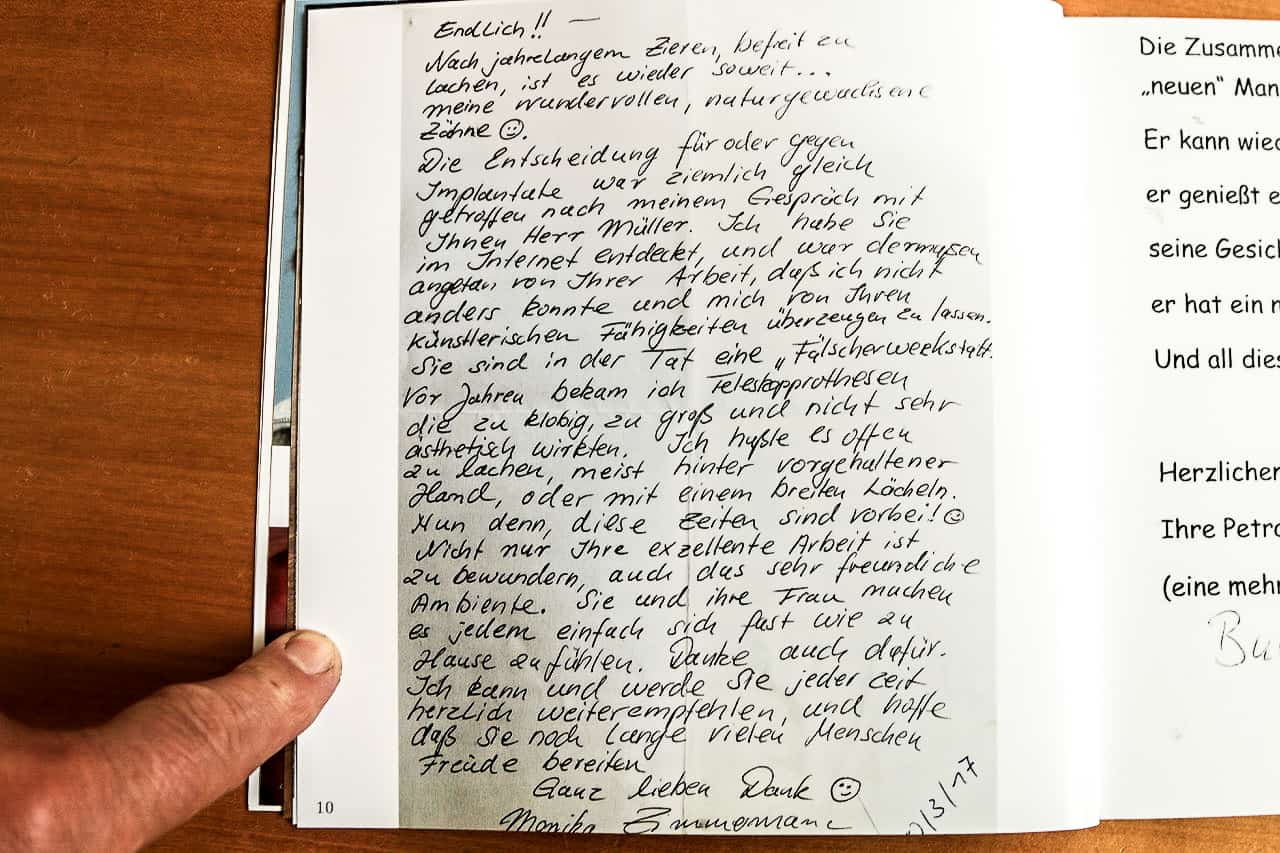 Endlich!! —
Nach jahrelangem Zieren, befreit zu
lachen, ist es wieder soweit...
meine wundervollen, naturgewachsene
Zähne ☺.
Die Entscheidung für oder gegen
Implantate war ziemlich gleich
getroffen nach meinem Gespräch mit
Ihnen Herr Müller. Ich habe Sie
im Internet entdeckt, und war dermaßen
angetan von Ihrer Arbeit, daß ich nicht
anders konnte und mich von Ihren
künstlerischen Fähigkeiten überzeugen zu lassen.
Sie sind in der Tat eine „Fälscherwerkstatt.
Vor Jahren bekam ich Teleskopprothesen
die zu klobig, zu groß und nicht sehr
ästhetisch wirkten. Ich hußte es offen
zu lachen, meist hinter vorgehaltener
Hand, oder mit einem breiten Lächeln.
Nun denn, diese Zeiten sind vorbei! ☺
Nicht nur Ihre exzellente Arbeit ist
zu bewundern, auch das sehr freundliche
Ambiente. Sie und ihre Frau machen
es jedem einfach sich fast wie zu
Hause zu fühlen. Danke auch dafür.
Ich kann und werde Sie jeder zeit
herzlich weiterempfehlen, und hoffe
daß Sie noch lange vielen Menschen
Freude bereiten
Ganz lieben Dank ☺
Monika Zimmermann
/3/17
10
Die Zusamme
„neuen“ Man
Er kann wied
er genießt e
seine Gesic
er hat ein
Und all dies
Herzlicher
Ihre Petra
(eine meh
Bu